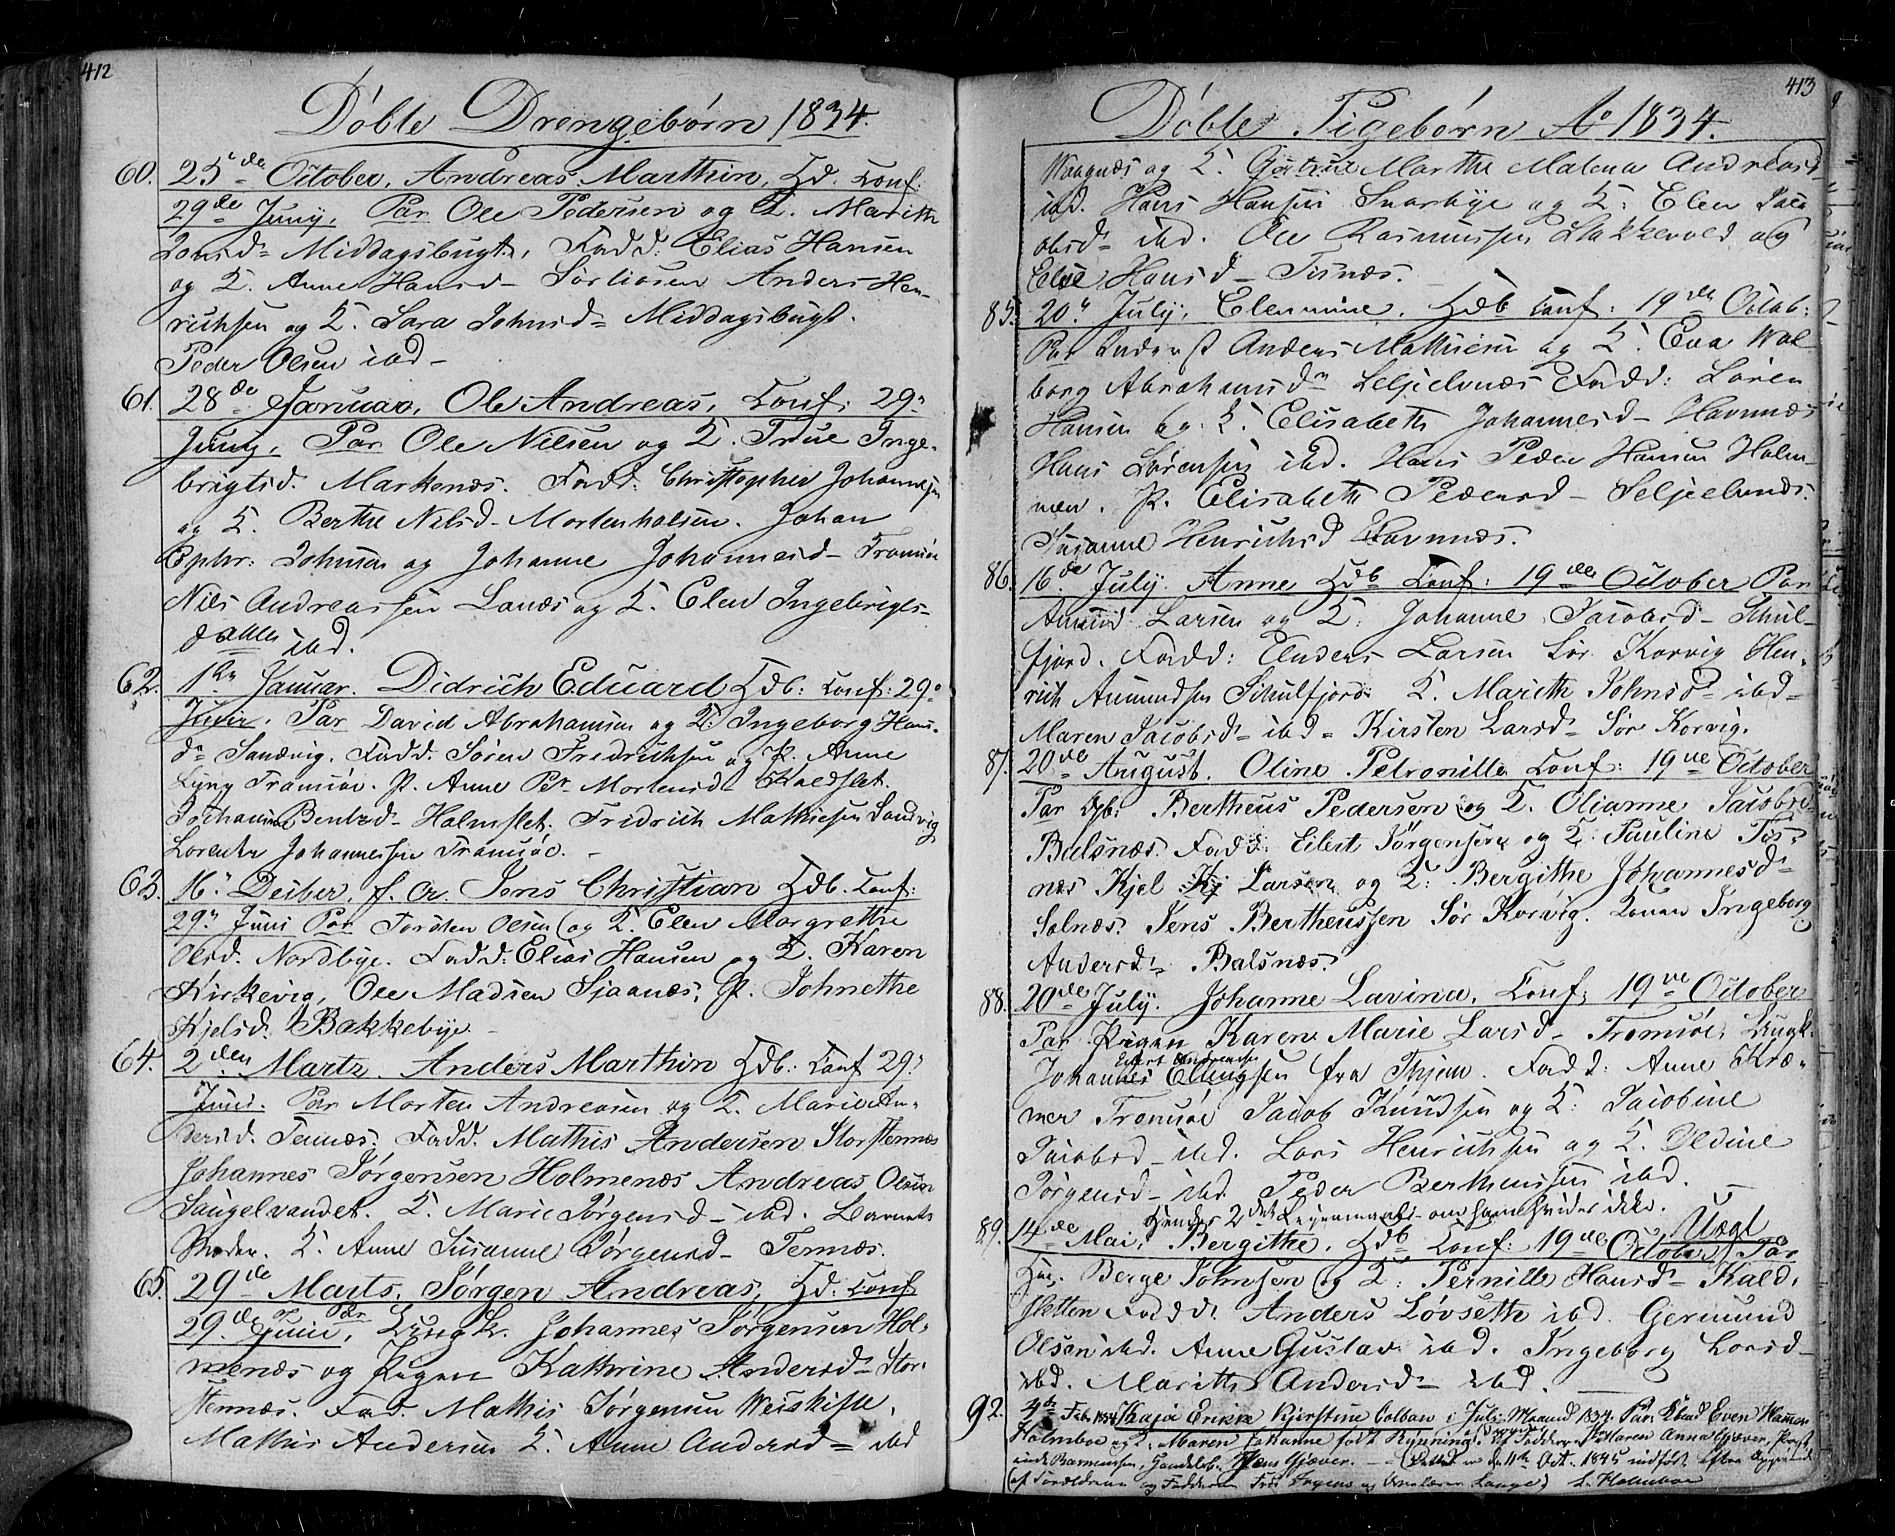 412
Döbte Drengebörn 1834.
60. 25de October, Andreas Marthin, Hd. Conf:
29de Juny, Par Ole Pedersen og K. Marith
Middagsbugt, Fadd: Elias Hansen
og K. Anne Hansd- Anders Hen-
richsen og K. Sara Johnsd= Middagsbugt.
Peder Olsen ibd-
61. 28de Januar, Ole Andreas, Conf: 29"
Juny, Par Ole Nilsen og K. Trine Inge-
brigtsd. Markenæs. Fadd: Christopher Johannesen
og K. Berthe Nilsd- Mortenhalsen. Johan
Ephr: Johnsen og Johanne Johannesd- Tromsöe
Nils Andreassen Lanæs og K. Elen Ingebrigts-
d alle ibd.
62. 1ste Januar. Didrich Eduard Hdb: Conf: 29"
Juni, Par David Abrahamsen og K: Ingeborg Hans-
d- Sandvig. Fadd. Sören Fredrichsen og P. Anne
Lyng Tromsöe. P. Anne Pt Mortensd Kaldslet.
Bentsd- Holmslet. Fredrich Mathiesen Sandvig
Lorentz Johannessen Tromsöe. -
63. 16" Decber, f. A. Jens Christian Hdb. Conf:
29" Juni Par Torsten Olsen og K. Elen Margrethe
Olsd. Nordbye. Fadd: Elias Hansen og K. Karen
Kirkevig, Ole Madsen Sjaanæs, P. Johnethe
Kjelsd. Bakkebye. -
64. 2den Martz. Anders Marthin Hdb: Conf 29"
Juni. Par Morten Andreasen og K. Marie An-
dersd. Tennæs. Fadd. Mathis Andersen Storstennæs
Johannes Jörgensen Holmenæs Andreas Olsen
Saugelvandet. K. Marie Jörgensd- ibd. Barnets
Moder. K. Anne Susanne Jörgensd- Tennæs.
65. 29de Marts. Jörgen Andreas, Hd. Conf
29de Juni, Par Ungk. Johannes Jörgensen Hol-
menæs og Pigen Kathrine Andersd- Stor-
stennæs. Fad. Mathis Jörgensen
Mathis Andersen K. Anne Andersd= ibd
413
Döbte Pigebörn Ao 1834.
Vaagnæs og K. Marthe Malena Andreasd
ibd. Hans Hansen Snarbye og K: Elen Jaco
obsd- ibd. Ole Rasmussen Stakkevold og
Else Hansd- Tisnæs.
85. 20" July, Elenmine, Hdb Conf: 19de Octob:
Par Anders Mathisen og K: Eva Wol-
borg Abrahamsdr Seljelvnæs Fadd: Sören
Hansen og K. Elisabeth Johannesd- Havnnæs
Hans Sörensen ibd. Hans Peder Hansen Holm-
næs. P. Elisabeth Pedersd- Seljeelvnæs.
Susanne Henrichsd Havnnæs.
86. 16de July. Anne Hdb Conf: 19de October Par
Amund Larsen og K: Johanne Jacobsd- Schul-
fjord. Fadd: Anders Larsen Sör Korvig Hen-
rich Amundsen Schulfjord K. Marith Johnsd- ibd-
Maren Jacobsd- ibd- Kirsten Larsd- Sör Korvig.
87. 20de August. Oline Petronille Conf: 19de October
Par Bertheus Pedersen og K. Olianne Jacobsd-
Balsnæs. Fadd: Eilert Jörgensen og K: Pauline Tös-
næs Kjel Kj Larsen og K: Bergithe Johannesd-
Solnæs. Jens Bertheussen Sör Korvig. Konen Ingeborg
Andersd- Balsnæs.
88. 20de July. Johanne Lavina, Conf: 19de October
Par Pigen Karen Marie Larsd- Tromsöe: Ungk.
Eilert Andreas
Johannes Ellingsen fra Thjem. Fadd: Anne Kræ-
mer Tromsöe Jacob Knudsen og K: Jacobine
Jacobsd- ibd. Lars Henrichsen og K. Oldine
Jörgensd- ibd Peder Bertheussen ibd. -
Hendes 2det Leyermaal- om hans vides ikke. Uægt
89. 14de Mai, Bergithe. Hdb Conf: 19de October Par
Berge Johnsen og K: Pernille Hansd- Kald-
sletten Fadd: Anders Lövseth ibd. Germund
Olsen ibd. Anne Gustav ibd. Ingeborg Larsd-
ibd. Marith Andersd- ibd.
92. Feb. 1834 Kaja Erikke Kjerstine Colban i Juli Maaned 1834. Par Even Hammer
Holmboe og K. Maren Johanne föd Rynning. Faddere: Maren Anna Gjæver,
Rasmussen, Hans Gjæver. - (Dette er d. 11te Oct. 1845 indfört efter Opgivende
af Forældrene og Fadderne Lange) L. Holmboe